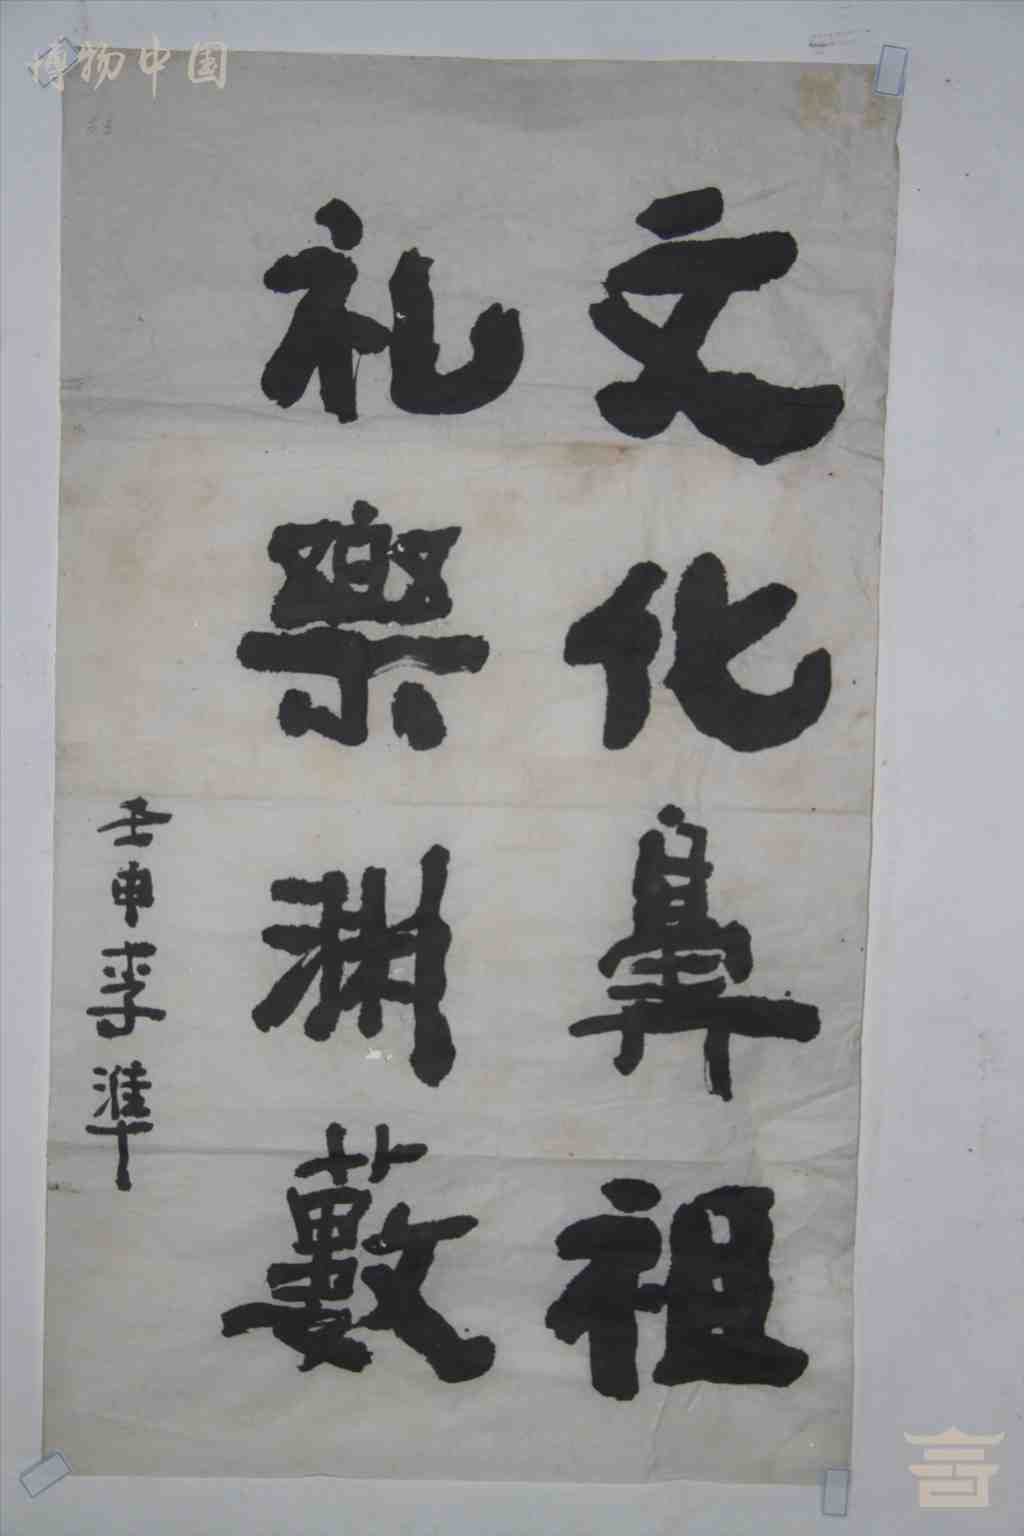 文化鼻祖
礼樂渊藪
壬申李準
博物中国